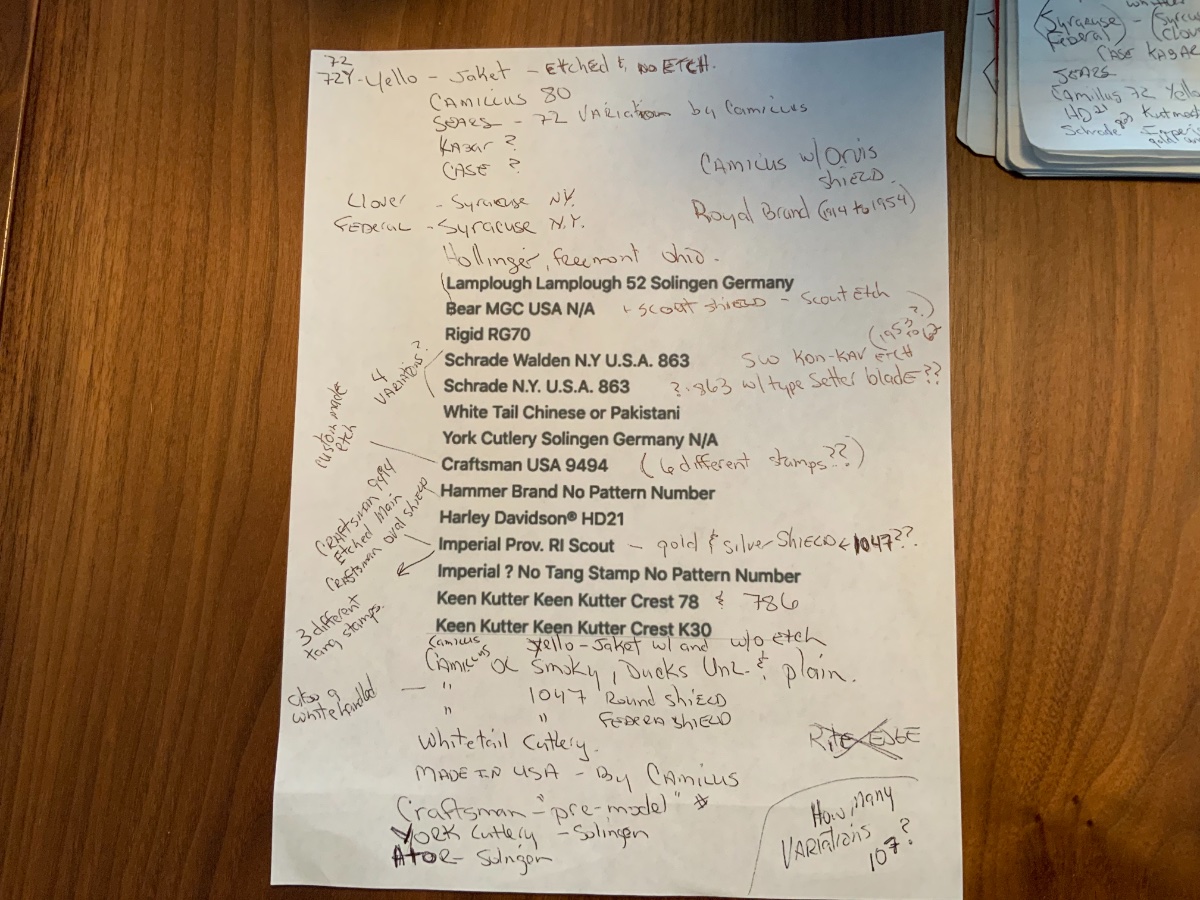 72
72Y-Yello - Jaket - Etched & no Etch.
Camillus 80
Sears - 72 Variation by Camillus
Kabar ?
Case ?
Camilus w/Orvis
shield
Clover - Syracuse NY.
Federal - Syracuse N.Y.
Royal Brand (1914 to 1954)
Hollinger, Freemont Ohio.
Lamplough Lamplough 52 Solingen Germany
Bear MGC USA N/A + scout shield - scout etch
Rigid RG70
4
Variations?
Schrade Walden N.Y U.S.A. 863 SW Kon-Kav Etch
Schrade N.Y. U.S.A. 863 ?.863 w/type setter blade??
White Tail Chinese or Pakistani
York Cutlery Solingen Germany N/A
custom made
etch
Craftsman USA 9494 (6 different stamps??)
Hammer Brand No Pattern Number
Harley Davidson® HD21
Craftsman 9494
Etched Main
Craftsman oval shield
Imperial Prov. RI Scout - gold & silver shield & 1047??.
Imperial ? No Tang Stamp No Pattern Number
Keen Kutter Keen Kutter Crest 78 & 786
Keen Kutter Keen Kutter Crest K30
3 different
tang stamps.
Camilus Yello-Jaket w/ and w/o etch
Smoky, Ducks Unl. & plain.
also a
white handled
- " 1047 Round shield
" " shield
Whitetail Cutlery.
Rite Edge
Made in USA - By Camilus
Craftsman - "pre-model" #
York Cutlery - Solingen
Ator - Solingen
How many
Variations
107?
(Syracuse
Federal)
Case Kabar
Sears
Camillus 72 Yello
HD21
Schrade